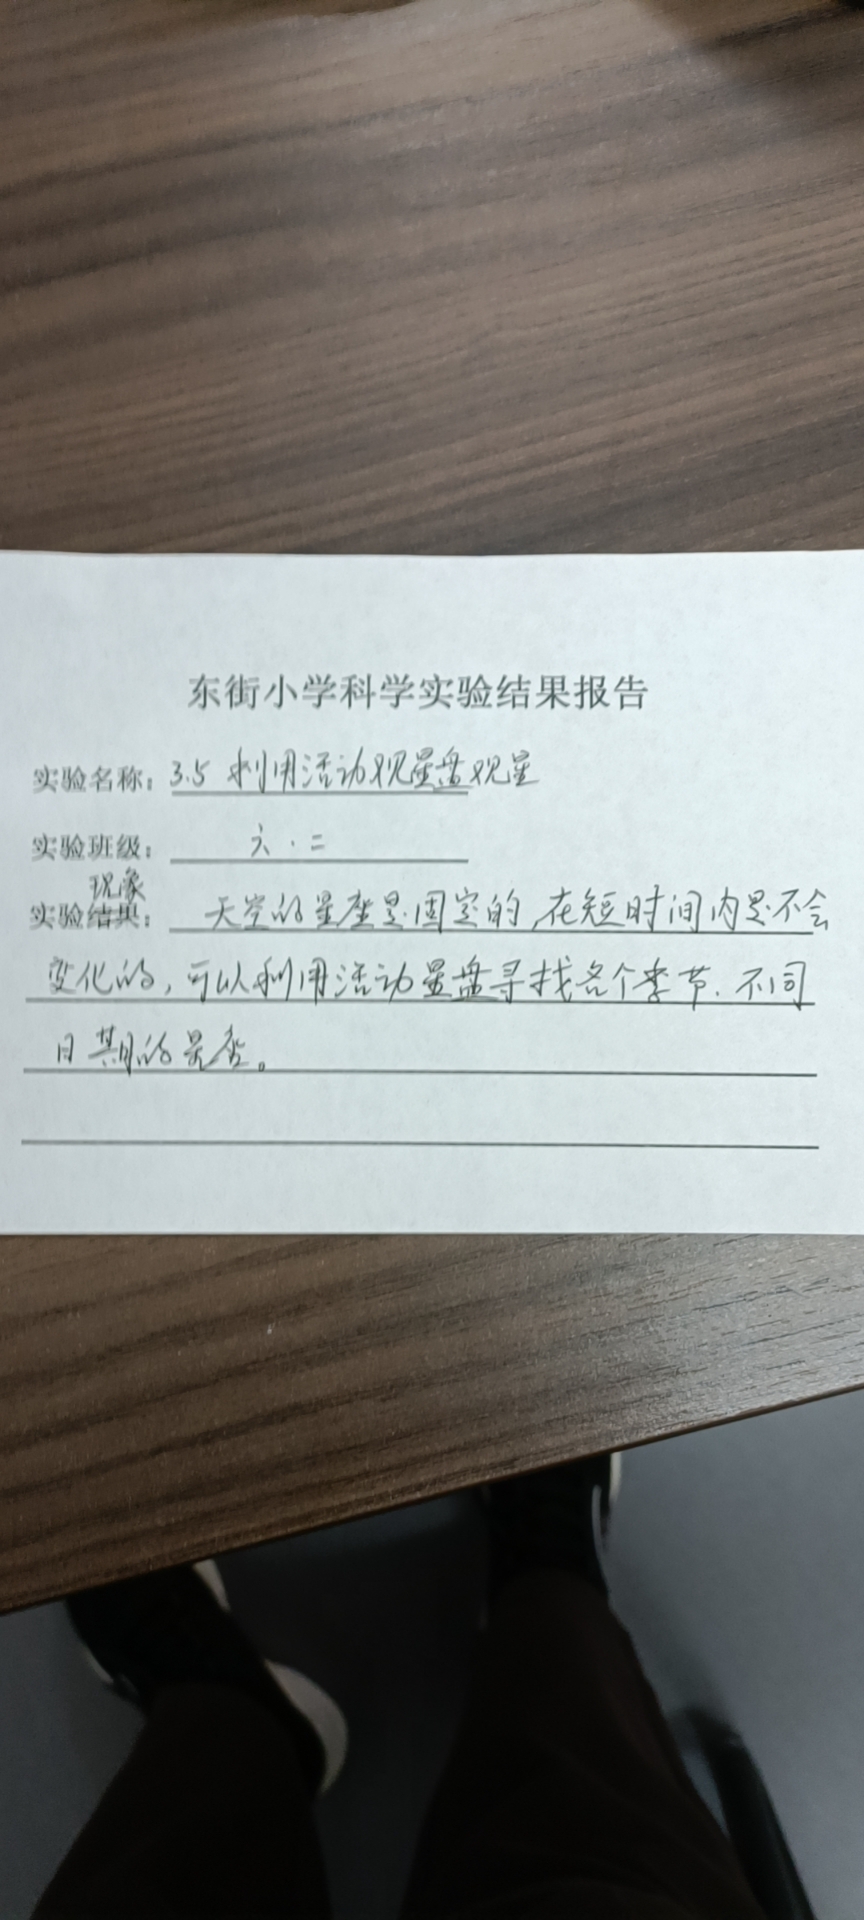 东街小学科学实验结果报告
实验名称：3.5 利用活动观星盘观星
实验班级：六·二
现象
实验结果：天空的星座是固定的,在短时间内是不会
变化的,可以利用活动星盘寻找各个季节.不同
日期的星座。